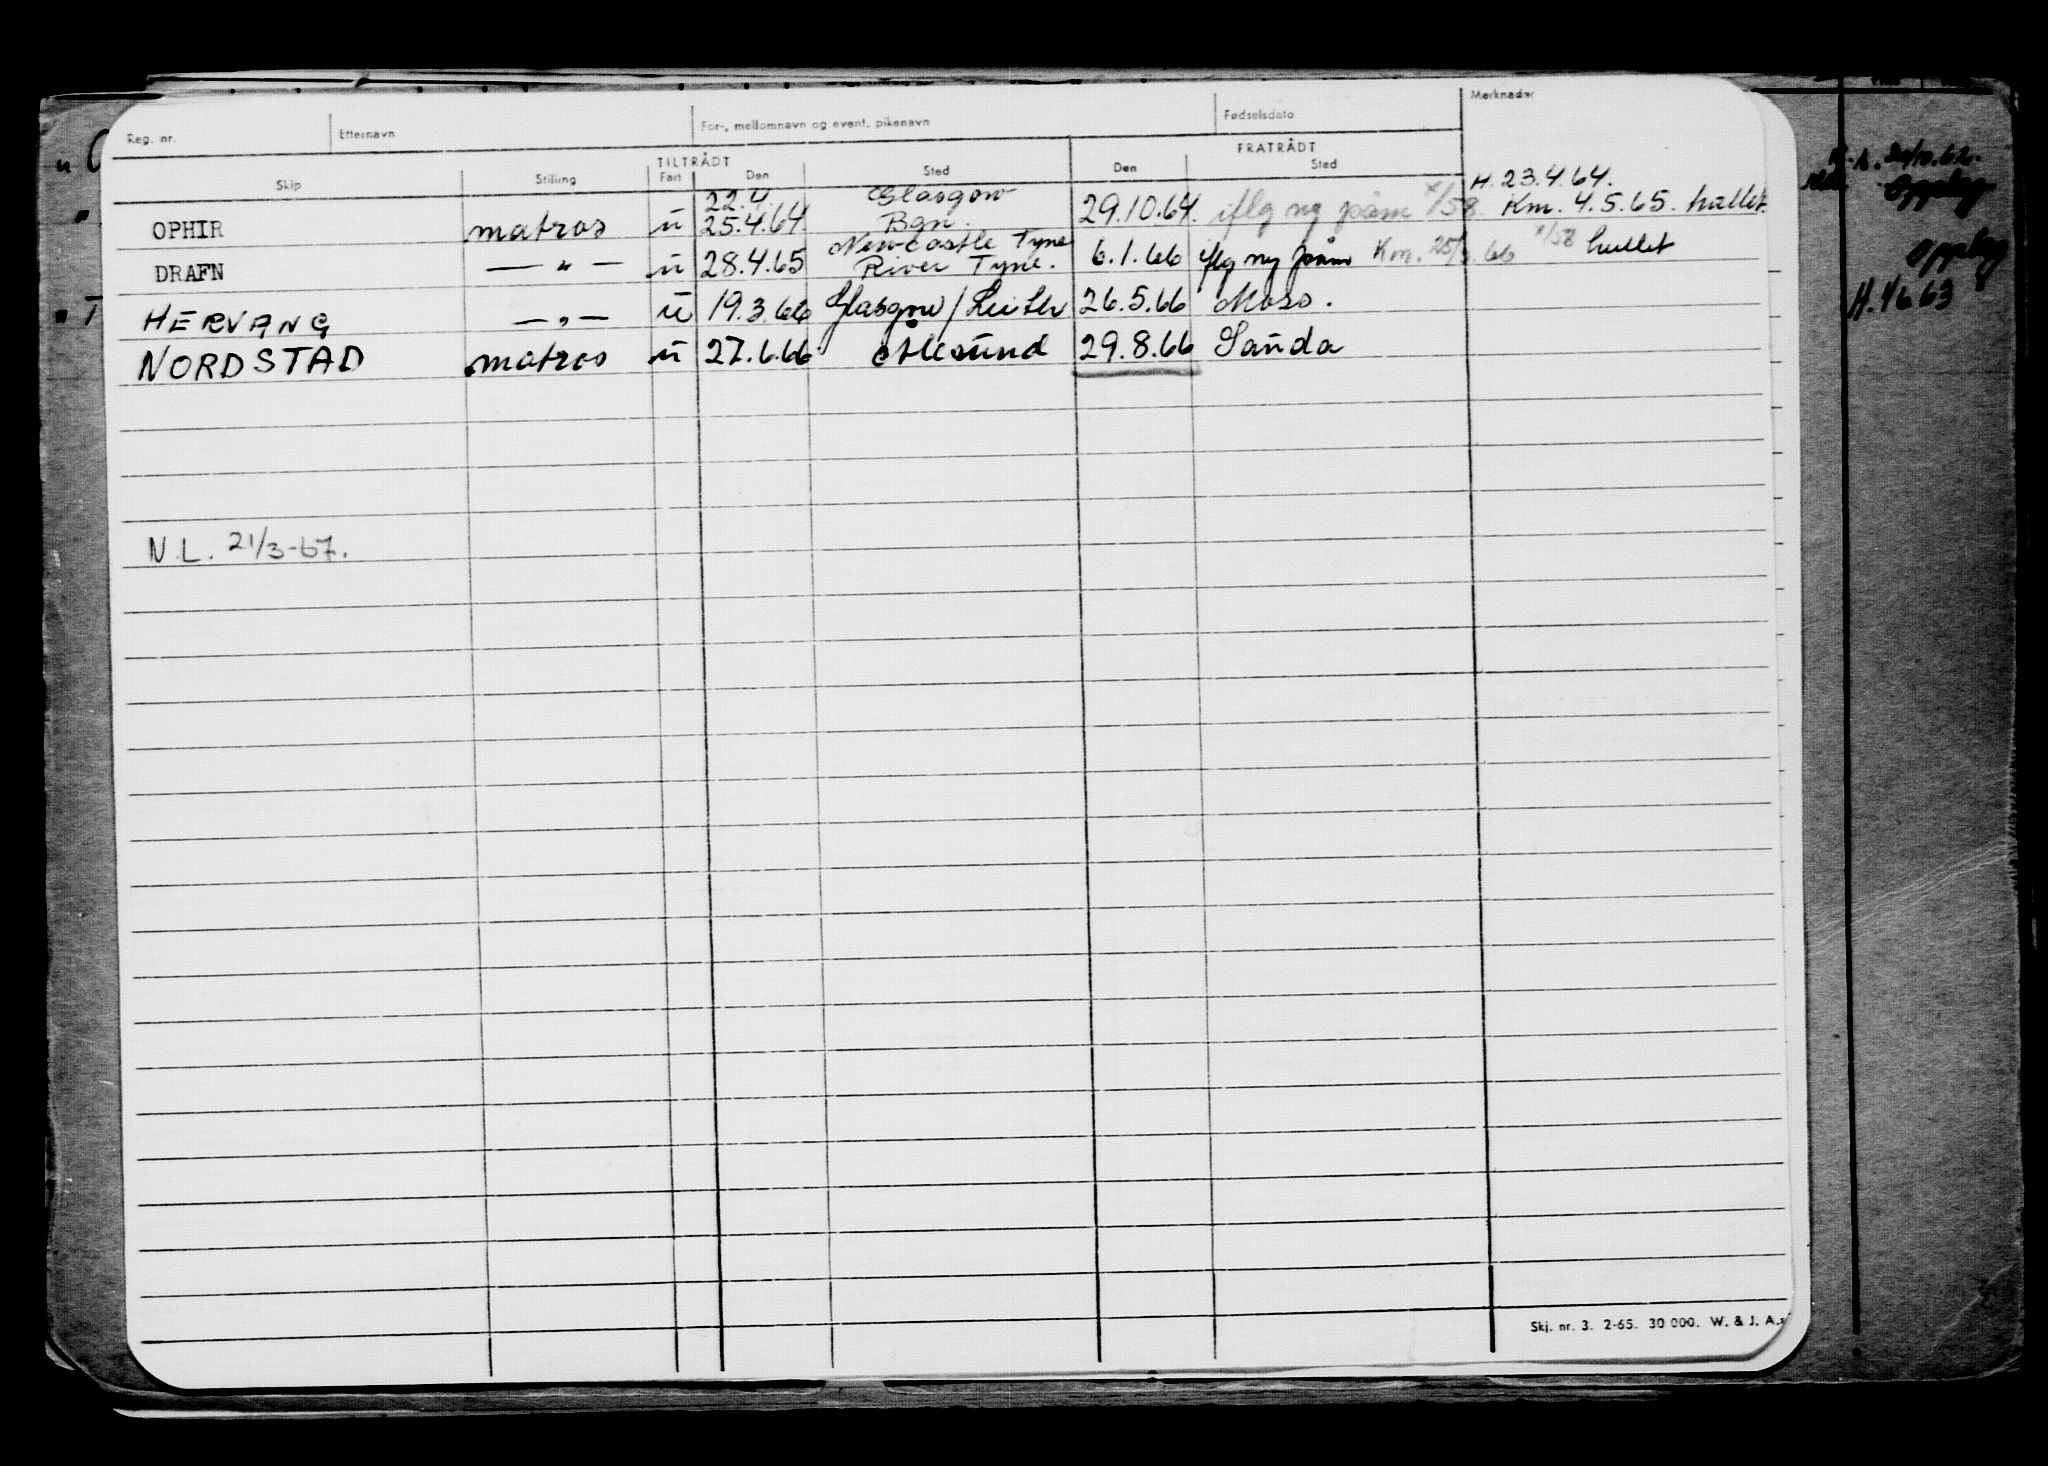 Reg. nr. Etternavn For-, mellomnavn og event. pikenavn Fødselsdato Merknader
TILTRÅDT FRATRÅDT
Skip Stilling Fart Den Sted Den Sted
22.4. Glasgow H. 23.4.64.
OPHIR matros u 25.4.64. Bgn. 29.10.64. iflg ny påm x/58 Km. 4.5.65. hullet.
Newcastle Tyne
DRAFN — " — u 28.4.65 River Tyne. 6.1.66 iflg ny påm Km. 25/3.66 x/58 hullet
HERVANG — " — u 19.3.66 Glasgow/Leith 26.5.66 Moss.
NORDSTAD matros u 27.6.66 Ålesund 29.8.66 Sauda
N.L. 21/3-67.
Skj. nr. 3. 2-65. 30 000. W. & J. A.s
Opphog
Opphog
H. 4/6 63